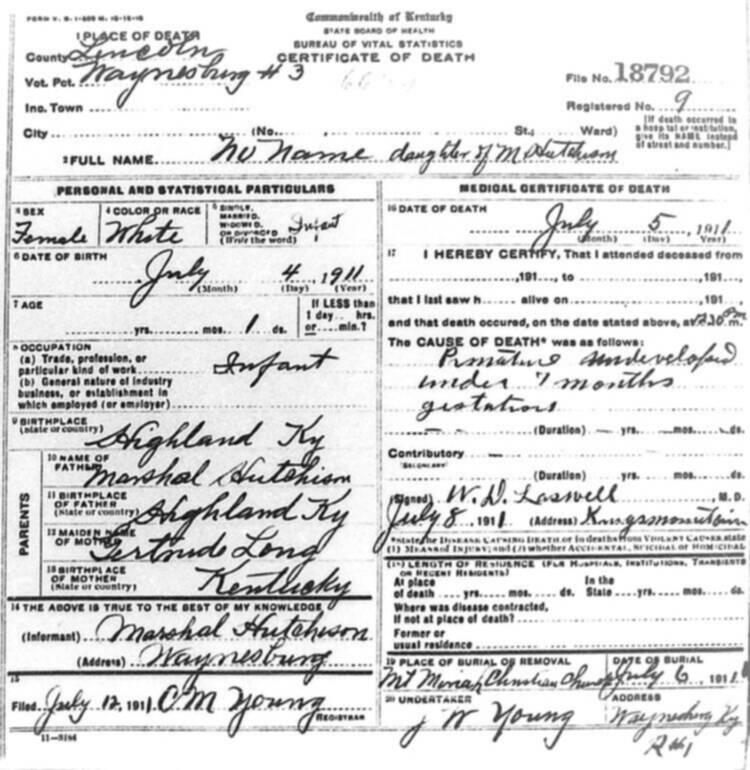 FORM V. S. 1-200 M. 12-12-10
Commonwealth of Kentucky
STATE BOARD OF HEALTH
BUREAU OF VITAL STATISTICS
CERTIFICATE OF DEATH
1 PLACE OF DEATH
County Lincoln
Vot. Pct. Waynesburg # 3
Inc. Town
City (No. St.; Ward)
File No. 18792
Registered No. 9
[If death occurred in a hospital or institution, give its NAME instead of street and number.]
2 FULL NAME No Name daughter of M Hutchison
PERSONAL AND STATISTICAL PARTICULARS
3 SEX
Female
4 COLOR OR RACE
White
5 SINGLE, MARRIED, WIDOWED, OR DIVORCED (Write the word)
Infant
6 DATE OF BIRTH
July 4, 1911
(Month) (Day) (Year)
7 AGE
yrs. mos. 1 ds.
If LESS than 1 day hrs. or min.?
8 OCCUPATION
(a) Trade, profession, or particular kind of work Infant
(b) General nature of industry business, or establishment in which employed (or employer)
9 BIRTHPLACE
(State or country) Highland Ky
PARENTS
10 NAME OF FATHER
Marshal Hutchison
11 BIRTHPLACE OF FATHER
(State or country) Highland Ky
12 MAIDEN NAME OF MOTHER
Gertrude Long
13 BIRTHPLACE OF MOTHER
(State or country) Kentucky
14 THE ABOVE IS TRUE TO THE BEST OF MY KNOWLEDGE
(Informant) Marshal Hutchison
(Address) Waynesburg
15
Filed July 12, 1911 C M Young
REGISTRAR
11-3184
MEDICAL CERTIFICATE OF DEATH
16 DATE OF DEATH
July 5, 1911
(Month) (Day) (Year)
17 I HEREBY CERTIFY, That I attended deceased from
, 191 , to , 191 ,
that I last saw h alive on , 191 ,
and that death occured, on the date stated above, at 12.30 P.m.
The CAUSE OF DEATH* was as follows:
Prmature undeveloped
under 7 months
gestation
(Duration) yrs. mos. ds.
Contributory
(SECONDARY)
(Duration) yrs. mos. ds.
(Signed) W. D. Laswell M. D.
July 8, 1911 (Address) Kingsmountain
*State the DISEASE CAUSING DEATH or in deaths from VIOLENT CAUSES, state (1) MEANS OF INJURY; and (2) whether ACCIDENTAL, SUICIDAL or HOMICIDAL
18 LENGTH OF RESIDENCE (FOR HOSPITALS, INSTITUTIONS, TRANSIENTS OR RECENT RESIDENTS)
At place of death yrs. mos. ds. In the State yrs. mos. ds.
Where was disease contracted, If not at place of death?
Former or usual residence
19 PLACE OF BURIAL OR REMOVAL
Mt Moriah Christian Church
DATE OF BURIAL
July 6, 1911
20 UNDERTAKER
J W Young
ADDRESS
Waynesburg Ky
R #1